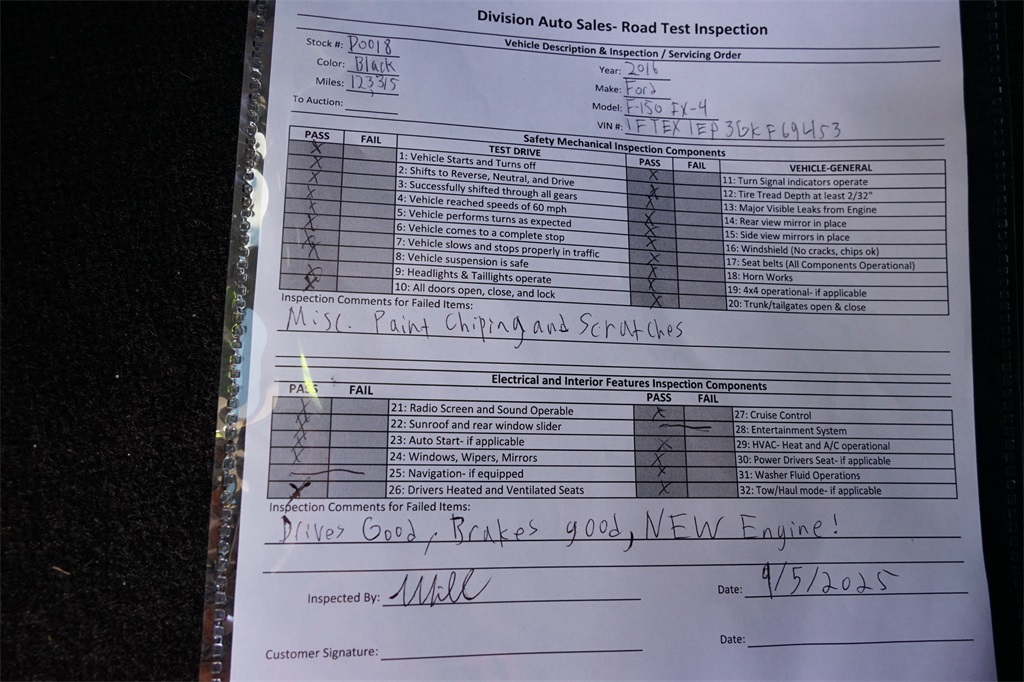 Division Auto Sales- Road Test Inspection
Vehicle Description & Inspection / Servicing Order
Stock #: P0018
Color: Black
Miles: 123315
To Auction:
Year: 2016
Make: Ford
Model: F-150 FX-4
VIN #: 1FTEX1EP3GKF69453
Safety Mechanical Inspection Components
PASS FAIL TEST DRIVE
X 1: Vehicle Starts and Turns off
X 2: Shifts to Reverse, Neutral, and Drive
X 3: Successfully shifted through all gears
X 4: Vehicle reached speeds of 60 mph
X 5: Vehicle performs turns as expected
X 6: Vehicle comes to a complete stop
X 7: Vehicle slows and stops properly in traffic
X 8: Vehicle suspension is safe
X 9: Headlights & Taillights operate
X 10: All doors open, close, and lock
PASS FAIL VEHICLE-GENERAL
X 11: Turn Signal indicators operate
X 12: Tire Tread Depth at least 2/32"
X 13: Major Visible Leaks from Engine
X 14: Rear view mirror in place
X 15: Side view mirrors in place
X 16: Windshield (No cracks, chips ok)
X 17: Seat belts (All Components Operational)
X 18: Horn Works
X 19: 4x4 operational- if applicable
X 20: Trunk/tailgates open & close
Inspection Comments for Failed Items:
Misc. Paint Chiping and Scratches
Electrical and Interior Features Inspection Components
PASS FAIL
X 21: Radio Screen and Sound Operable
X 22: Sunroof and rear window slider
X 23: Auto Start- if applicable
X 24: Windows, Wipers, Mirrors
25: Navigation- if equipped
X 26: Drivers Heated and Ventilated Seats
PASS FAIL
X 27: Cruise Control
28: Entertainment System
X 29: HVAC- Heat and A/C operational
X 30: Power Drivers Seat- if applicable
X 31: Washer Fluid Operations
X 32: Tow/Haul mode- if applicable
Inspection Comments for Failed Items:
Drives Good, Brakes good, NEW Engine!
Inspected By: Will
Date: 9/5/2025
Customer Signature:
Date: